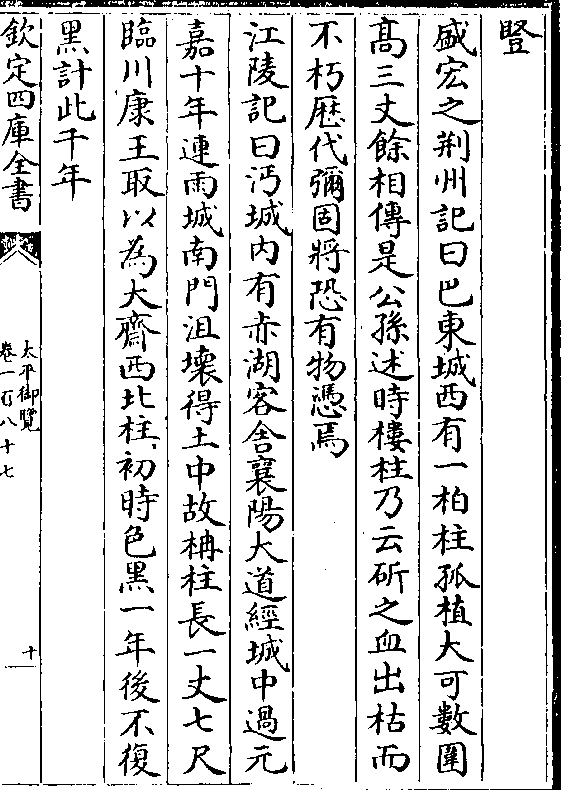 豎
盛宏之荆州記曰巴東城西有一柏柱孤植大可數圍
髙三丈餘相傳是公孫述時樓柱乃云斫之血出枯而
不朽歴代彌固將恐有物憑焉
江陵記曰沔城内有赤湖客舎襄陽大道經城中過元
嘉十年連雨城南門沮壊得土中故柟柱長一丈七尺
臨川康王取以為大齊西北柱初時色黑一年後不復
黑計此千年
欽定四庫全書
太平御覽
卷一百八十七
十